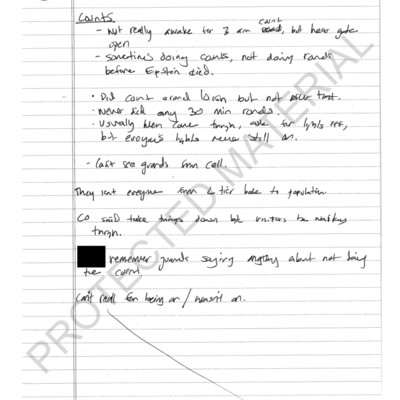 Counts
- Not really awake for 3 am count, but hear gate
open
- sometimes doing counts, not doing rounds
before Epstein died.
• Did count around 10ish but not after that.
• Never did any 30 min rounds.
• Usually when came through, ask for lights off,
but everyone's lights were still on.
- Can't see guards from cell.
They sent everyone from L tier back to population.
CO said take things down b/c visitors be walking
through.
remember guards saying anything about not doing
the count.
Can't recall fan being on / wasn't on.
PROTECTED MATERIAL